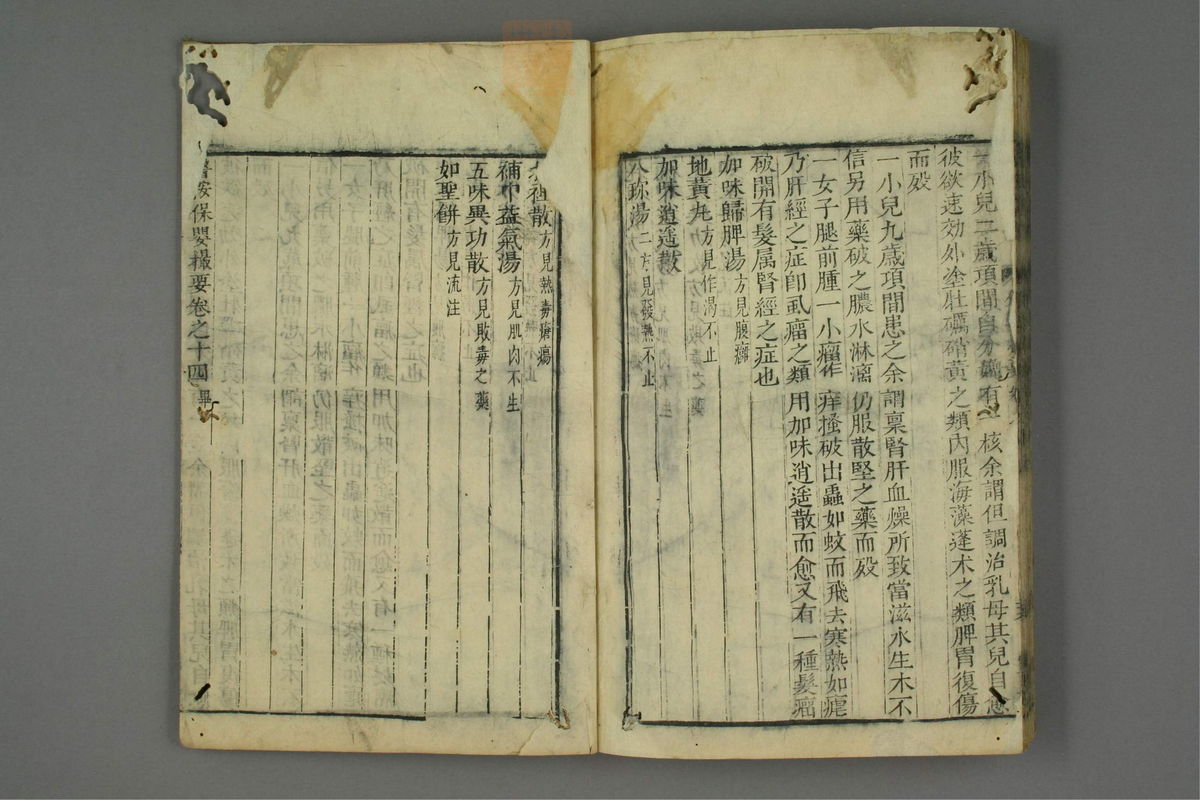 一小兒二歲項間自分娩有一核余謂但調治乳母其兒自愈
彼欲速効外塗牡礪硝黃之類內服海藻蓬术之類脾胃復傷
而歿
一小兒九歲項間患之余謂稟腎肝血燥所致當滋水生木不
信另用藥破之膿水淋漓仍服散堅之藥而歿
一女子腿前腫一小瘤作痒搔破出蟲如蚊而飛去寒熱如瘧
乃肝經之症卽虱瘤之類用加味逍遥散而愈又有一種髮瘤
破開有髮属腎經之症也
加味歸脾湯方見腹癰
地黃丸方見作渴不止
加味逍遥散
八珍湯二方見發熱不止
祖散方見熱毒瘡瘍
補中益氣湯方見肌肉不生
五味異功散方見敗毒之藥
如聖餅方見流注
醫按保嬰撮要卷之十四畢